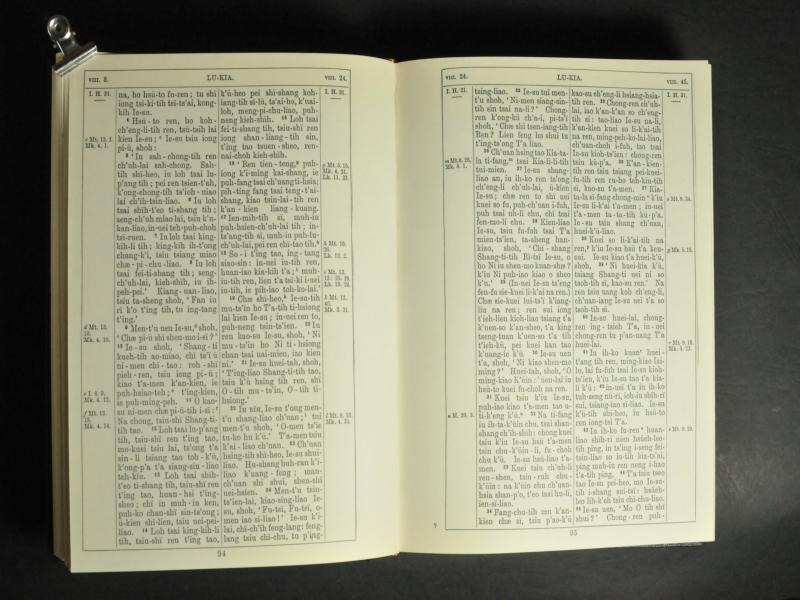 VIII. 3.
LU-KIA.
VIII. 24.
I. H. 31.
I. H. 31.
na, ho hsü-to fu-ren; tu shi
iong tsi-ki-tih tsi-ts'ai, kong-
kih Ie-su.
4 Hsü-to ren, ho koh-
ch'eng-li-tih ren, tsü-tsih lai
kien Ie-su; Ie-su tsiu iong
pi-ü, shoh:
5 'In sah-chong-tih ren
ch'uh-lai sah-chong. Sah-
tih shi-heo, iu loh tsai lu-
p'ang tih; pei ren tsien-t'ah,
k'ong-chong-tih ts'ioh-niao
lai ch'ih-tsin-liao. 6 Iu loh
tsai shih-t'eo ti-shang tih;
seng-ch'uh miao lai, tsiu k'u-
kan-liao, in-uei teh-puh-choh
tsi-ruen. 7 Iu loh tsai king-
kih-li tih; king-kih ih-t'ong
chang-k'i, tsiu tsiang miao
chæ-pi-chu-liao. 8 Iu loh
tsai fei-ti-shang tih; seng-
ch'uh-lai, kieh-shih, iu ih-
peh-pei.' Kiang-uan-liao,
tsiu ta-sheng shoh, 'Fan iu
ri k'o t'ing tih, tu ing-tang
t'ing.'
9 Men-t'u uen Ie-su, shoh,
'Chæ pi-ü shi shen-mo i-si?'
10 Ie-su shoh, 'Shang-ti
kueh-tih ao-miao, chi ts'ï ü
ni-men chi-tao: roh-shi
pieh-ren, tsiu iong pi-ü;
kiao t'a-men k'an-kien, ie
puh-hsiao-teh; t'ing-kien,
ie puh-ming-peh. 11 O kao-
su ni-men chæ pi-ü-tih i-si:
Na chong, tsiu-shi Shang-ti-
tih tao. 12 Loh tsai lu-p'ang
tih, tsiu-shi ren t'ing tao,
mo-kuei tsiu lai, ts'ong t'a
sin-li tsiang tao toh-k'ü,
k'ong-p'a t'a siang-sin-liao
teh-kiu. 13 Loh tsai shih-
t'eo ti-shang tih, tsiu-shi ren
t'ing tao, huan-hsi t'ing-
sheo; chi in muh-iu ken,
puh-ko chan-shi sin-ts'ong;
ü-kien shi-lien, tsiu uei-pei-
liao. 14 Loh tsai king-kih-li
tih, tsiu-shi ren t'ing tao,
k'ü-heo pei shi-shang koh-
iang-tih si-lü, ts'ai-ho, k'uai-
loh, meng-pi-chu-liao, puh-
neng kieh-shih. 15 Loh tsai
fei-ti-shang tih, tsiu-shi ren
iong shan-liang-tih sin,
t'ing tao tsuen-sheo, ren-
nai-choh kieh-shih.
16 'Ren tien-teng, puh-
iong k'i-ming kai-shang, ie
puh-fang tsai ch'uang ti-hsia;
pih-ting fang tsai teng-t'ai-
shang, kiao tsin-lai-tih ren
k'an-kien liang-kuang.
17 Ien-mih-tih si, muh-iu
puh-hsien-ch'uh-lai tih; in-
ts'ang-tih si, muh-iu puh-lu-
ch'uh-lai, pei ren chi-tao tih.
18 So-i t'ing tao, ing-tang
siao-sin: in-uei iu-tih ren,
huan-iao kia-kih t'a; muh-
iu-tih ren, lien t'a tsi-ki i-uei
iu-tih, ie pih-iao toh-ko-lai.'
19 Chæ shi-heo, Ie-su-tih
mu-ts'in ho T'a-tih ti-hsiong
lai kien Ie-su; in-uei ren to,
puh-neng tsin-ts'ien. 20 Iu
ren kao-su Ie-su, shoh, 'Ni
mu-ts'in ho Ni ti-hsiong
chan tsai uai-mien, iao kien
ni.' 21 Ie-su huei-tah, shoh,
'T'ing-liao Shang-ti-tih tao,
tsiu k'ü hsing tih ren, shi
O-tih mu-ts'in, O-tih ti-
hsiong.'
22 Iu ih-tih, Ie-su t'ong men-
t'u shang-liao ch'uan; tui
men-t'u shoh, 'O-men ts'ie
tu-ko hu k'ü.' T'a-men tsiu
k'ai-liao ch'uan. 23 Ch'uan
hsing-tih shi-heo, Ie-su shui-
liao. Hu-shang huh-ran k'i-
liao k'uang-feng; man-
ch'uan shi shui, shen-shi
uei-hsien. 24 Men-t'u tsiu-
ts'ien-lai, kiao-sing-liao Ie-
su, shoh, 'Fu-tsï, Fu-tsï, o-
men iao si-liao!' Ie-su k'i-
lai, chi-ch'ih feng-lang: feng-
lang tsiu chi-chu, tu p'ing-
94
VIII. 24.
LU-KIA.
VIII. 45.
I. H. 31.
I. H. 31.
tsing-liao. 25 Ie-su tui men-
t'u shoh, 'Ni-men siang-sin-
tih sin tsai na-li?' Chong-
ren k'ong-kü ch'a-i, pi-ts'ï
shoh, 'Chæ shi tsen-iang-tih
Ren? Lien feng ho shui tu
t'ing-ts'ong T'a liao.
26 Ch'uan hsing tao Kia-ta-
la ti-fang, tsai Kia-li-li-tih
tui-mien. 27 Ie-su shang-
liao an, iu ih-ko ren ts'ong
ch'eng-li ch'uh-lai, ü-kien
Ie-su; chæ ren to shi uei
kuei so fu, puh-ch'uan i-fuh,
puh tsai uh-li chu, chi tsai
fen-mo-li chu. 28 Kien-liao
Ie-su, tsiu fu-fuh tsai T'a
mien-ts'ien, ta-sheng han-
kiao, shoh, 'Chï-shang
Shang-ti-tih Ri-tsï Ie-su, o
ho Ni iu shen-mo kuan-shæ?
k'iu Ni puh-iao kiao o sheo
k'u.' 29 (In-uei Ie-su ts'eng
fen-fu sie-kuei li-k'ai na ren.)
Chæ sie-kuei lui-ts'ï k'iang-
liu na ren; ren sui iong
t'ieh-lien kioh-liao tsiang t'a
k'uen-so k'an-sheo, t'a king
tseng-tuan k'uen-so t'a tih
t'ieh-kü, pei kuei kan tao
k'uang-ie k'ü. 30 Ie-su uen
t'a, shoh, 'Ni kiao shen-mo
ming?' Huei-tah, shoh, 'O
ming-kiao K'üin:' üen-lai iu
hsü-to kuei fu-choh na ren.
31 Kuei tsiu k'iu Ie-su,
puh-iao kiao t'a-men tao u-
ti-k'eng k'ü. 32 Na ti-fang
iu ih-ta-k'üin chu, tsai shan-
shang ch'ih-shih: chong kuei
tsiu k'iu Ie-su hsü t'a-men
tsin chu-k'üin-li, fu-choh
chu k'ü. Ie-su hsü-liao t'a-
men. 33 Kuei tsiu ch'uh-li
ren-shen, tsin-ruh chu-
k'üin: na k'üin chu ch'uan-
hsia shan-p'o, t'eo tsai hu-li,
ien-si-liao.
34 Fang-chu-tih ren k'an-
kien chæ si, tsiu p'ao-k'ü
kao-su ch'eng-li hsiang-hsia-
tih ren. 35 Chong-ren ch'uh-
lai, iao k'an-k'an so ch'eng-
tih si: tao-liao Ie-su na-li,
k'an-kien kuei so li-k'ai-tih
na ren, ming-peh-ko-lai-liao,
ch'uan-choh i-fuh, tso tsai
Ie-su kioh-ts'ien: chong-ren
tsiu kü-p'a. 36 K'an-kien-
tih ren tsiu tsiang pei-kuei-
fu-tih ren ru-ho teh-kiu-tih
si, kao-su t'a-men. 37 Kia-
ta-la si-fang chong-min k'iu
Ie-su li-k'ai t'a-men; in-uei
t'a-men ta-ta-tih kü-p'a.
Ie-su tsiu shang ch'uan,
huei-k'ü-liao.
38 Kuei so li-k'ai-tih na
ren, k'iu Ie-su hsü t'a ken-
sui. Ie-su kiao t'a huei-k'ü,
shoh, 39 'Ni huei-kia k'ü,
tsiang Shang-ti uei ni so
tsoh-tih si, kao-su ren.' Na
ren tsiu uang koh ch'eng-li,
ch'uan-iang Ie-su uei t'a so
tsoh-tih si.
40 Ie-su huei-lai, chong-
ren ing-tsieh T'a, in-uei
chong-ren tu p'an-uang T'a
huei-lai.
41 Iu ih-ko kuan huei-
t'ang tih ren, ming-kiao Iai-
lu, lai fu-fuh tsai Ie-su kioh-
ts'ien, k'iu Ie-su tao t'a kia-
li k'ü: 42 in-uei t'a iu ih-ko
tuh-seng nü-ri, ioh-iu shih-ri
sui, tsiang-iao si-liao. Ie-su
k'ü-tih shi-heo, iu hsü-to
ren iong-tsi T'a.
43 Iu ih-ko fu-ren huan-
liao shih-ri nien hsieh-leo-
tih ping, in ts'ing i-seng fei-
tsin-liao so iu-tih kia-ts'ai,
ping muh-iu ren neng i-hao
t'a-tih ping. 44 T'a tsiu ts'eo
tao Ie-su pei-heo, mo Ie-su-
tih i-shang sui-tsï: hsieh-
leo lih-k'eh tsiu chi-chu-liao.
45 Ie-su uen, 'Mo O tih shi
shui?' Chong-ren puh-
95